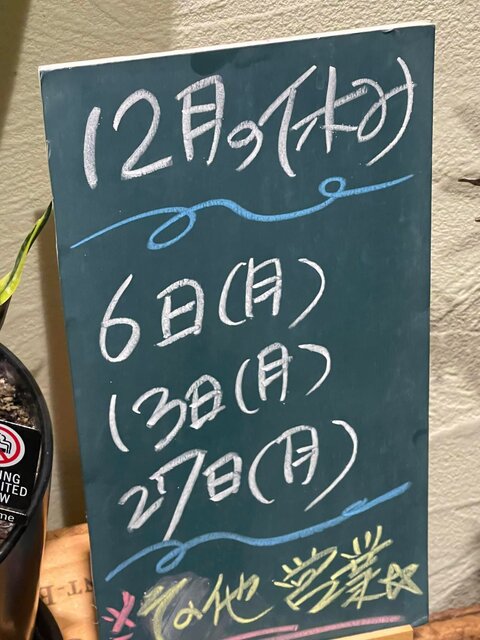 12月の休み
6日(月)
13日(月)
27日(月)
※その他 営業☆